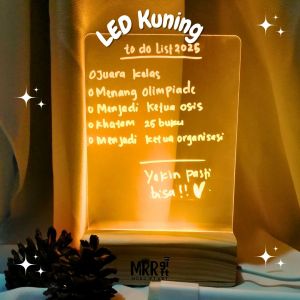 LED Kuning
to do list 2025
Juara kelas
Menang olimpiade
Menjadi ketua osis
Khatam 25 buku
Menjadi ketua organisasi
Yakin pasti
bisa!!
MRR gift